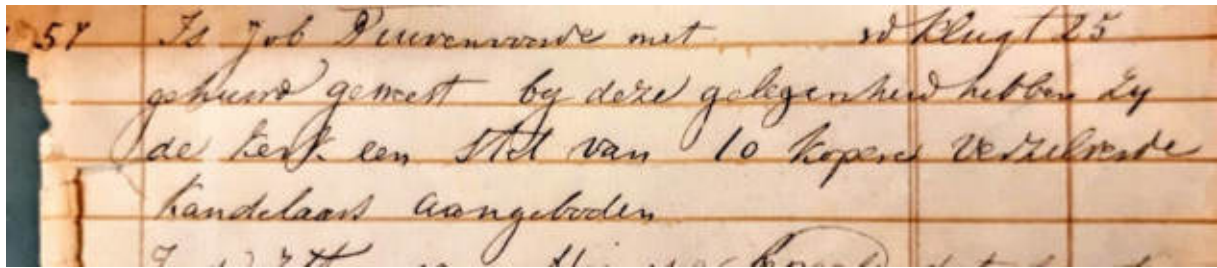 57 Is Job Duivenvoorde met vd Klugt 25
gehuwd geweest by deze gelegenheid hebben zy
de kerk een stel van 10 kopere verzilverde
kandelaars aangeboden